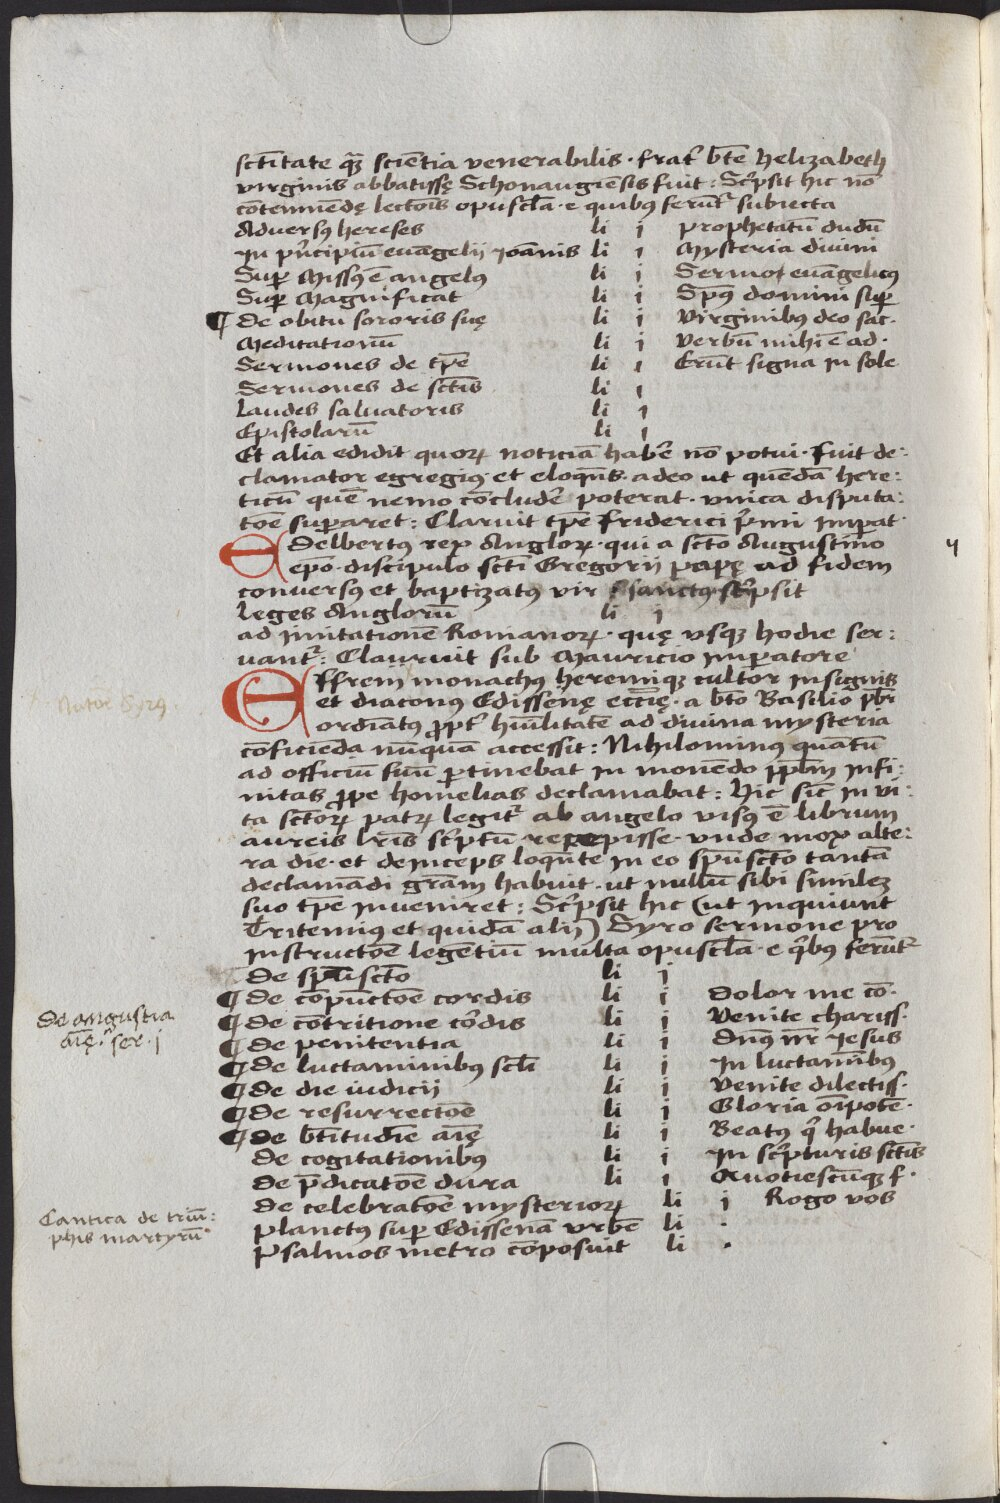 sctitate qȝ sciẽtia venerabilis · frat͛ bt̃e helizabeth
virginis abbatissę Schonaugiẽsis fuit : Sc͛psit hic nõ
cõtemnẽdę lectõis opuscl̃a · e quibꝰ ferũt᷑ subiecta
Adversꝰ hereses li j prophetatũ dudũ
In pͥncipiũ euãgelij Joãnis li j Mysteria divini
Suꝑ Missꝰ ẽ angelꝰ li j Sermo euãgelicꝰ
Suꝑ Magnificat li j Spũs domini suꝑ
¶ De obitu sororis suę li j Virginibꝰ deo sac·
Meditationũ li j Verbũ mihi ẽ ad·
Sermones de tp̃e li j Erũt signa in sole
Sermones de sctĩs li j
Laudes salvatoris li j
Epistolarũ li j
Et alia edidit quoꝝ noticiã habẽ nõ potui · fuit de:
clamator egregiꝰ et eloqũs · adeo ut quẽdã here:
ticũ quẽ nemo cõcludẽ poterat · vnica disputa:
tõe suꝑaret : Claruit tp̃e friderici p̃mi imꝑat·
Edelbertꝰ rex Angloꝝ · qui a sctõ Augustino
ep̃o · discipulo sctĩ Gregorij papę ad fidem
conversꝰ et baptizatꝰ vir sanctꝰ sc͛psit
Leges Anglorũ li j
ad imitationẽ Romanoꝝ · quę vsqȝ hodie ser:
uant᷑ : Clauruit sub Mauricio imꝑatore
Effrem monachꝰ heremiqȝ cultor insignis
et diaconꝰ Edissenę eccl̃ię · a bt̃o Basilio pb̃r
ordiãtꝰ ꝓpt͛ hũilitatẽ ad divina mysteria
cõficiẽda nũquã accessit : Nihilominꝰ quãtũ
ad officiũ suũ ꝑtinebat in monẽdo ppl̃m infi:
nitas ꝓpe homelias declamabat : Hic sic̃ in vi:
ta sctõꝝ patrꝝ legit᷑ ab angelo visꝰ ẽ librum
aureis lr̃is sc͛ptũ recepisse · vnde mox alte:
ra die · et deinceps loqũte in eo spũsctõ tantã
declamãdi gr̃am habuit · ut nullũ sibi simileȝ
suo tp̃e inveniret : Sc͛psit hic (ut inquiunt
Tritemiꝰ et quidã alij) Syro sermone pro
instructõe legẽtiũ multa opuscl̃a · e qͥbus ferũt᷑
De spũsctõ li j
¶ De cõpũctõe cordis li j Dolor me cõ·
¶ De cõtritione cõdis li j Venite chariss·
¶ De penitentia li j Dñꝰ nr̃ Jesus
¶ De luctaminibꝰ scl̃i li j In luctamĩbꝰ
¶ De die iudicij li j Venite dilectiss·
¶ De resurrectõe li j Gloria oĩpotẽ·
¶ De bt̃itudĩe aĩę li j Beatꝰ qͥ habue·
De cogitationibꝰ li j In sc͛pturis sctĩs
De p̃dicatõe dura li j Quotiescũqȝ f·
De celebratõe mysterioꝝ li j Rogo vos
Planctꝰ suꝑ Edissenã vrbẽ li ·
Psalmos metro cõposuit li ·
4
De angustia
aĩę · ser · j
Cantica de triũ:
phis martyrũ